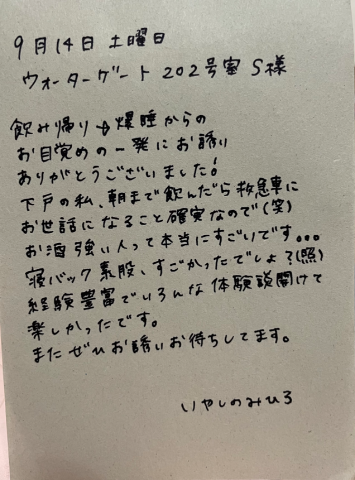 9月14日 土曜日
ウォーターゲート 202号室 S様
飲み帰り→爆睡からの
お目覚めの一発にお誘い
ありがとうございました!
下戸の私、朝まで飲んだら救急車に
お世話になること確実なので(笑)
お酒強い人って本当にすごいです...
寝バック素股、すごかったでしょ?(照)
経験豊富でいろんな体験談聞けて
楽しかったです。
またぜひお誘いお待ちしてます。
いやしのみひろ